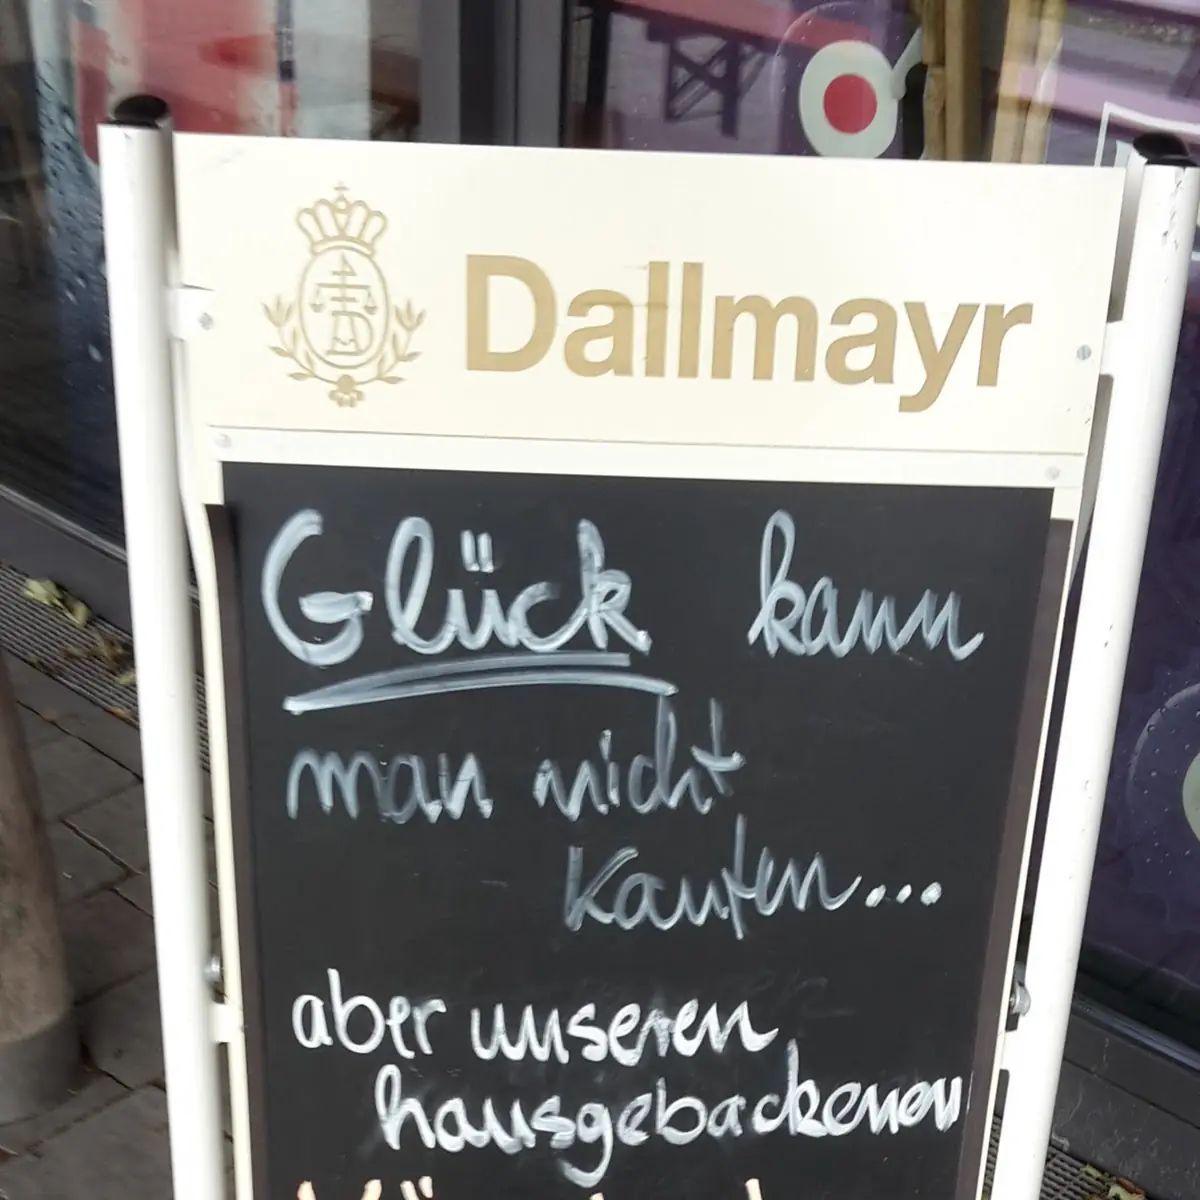 Dallmayr
Glück kann
man nicht
kaufen...
aber unseren
hausgebackenen